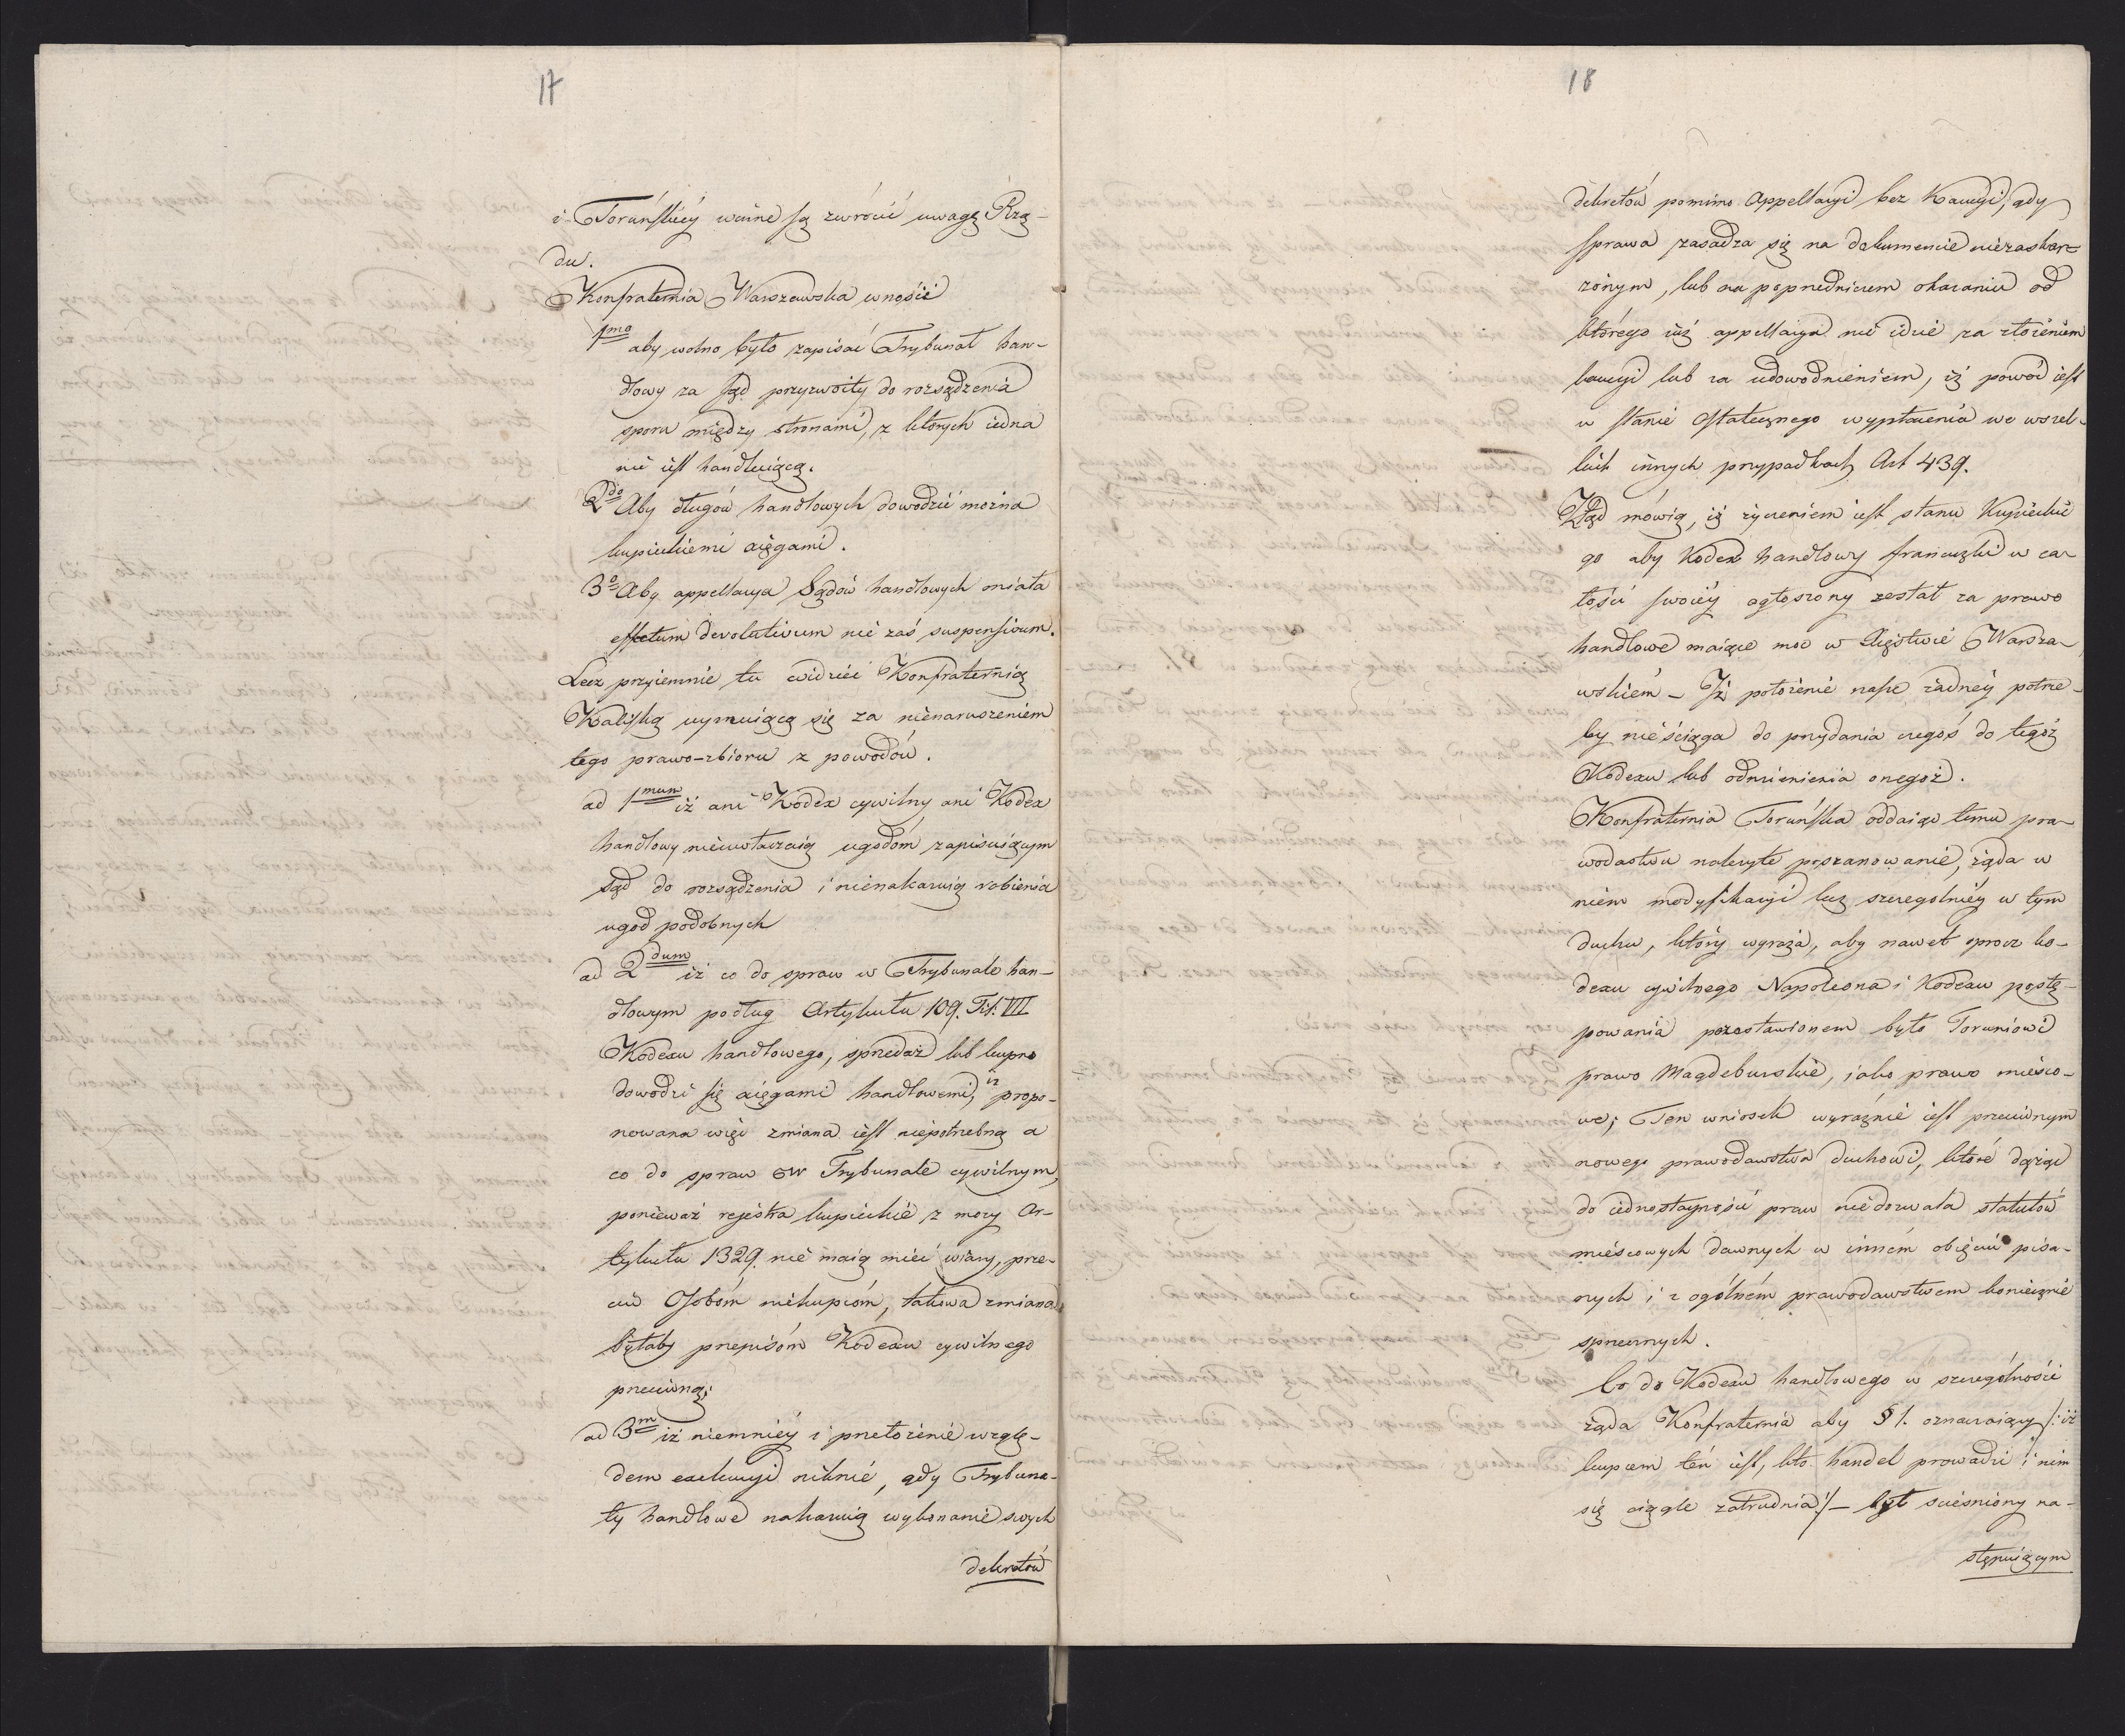 17
i Toruńskiéy ważne są zwrócić uwagę Rzą-
du.
Konfraternia Warszawska wnosić
1mo aby wolno było zapisać Trybunał han-
dlowy za sąd przyzwoity do rozsądzenia
sporu między stronami, z których iedna
nie iest handluiącą.
2do Aby długów handlowych dowodzić można
kupieckiemi xięgami.
3o Aby appellacya Sądów handlowych miała
effectum devolutivum nie zaś suspensivum.
Lecz przyiemnie tu widzieć Konfraternią
Kaliską uymuiącą się za nienaruszeniem
tego prawo-zbioru z powodów.
ad 1mum iż ani Kodex cywilny ani Kodex
handlowy nieuwłaczaią ugodóm zapisuiącym
sąd do rozsądzenia i nienakazuią robienia
ugod podobnych
ad 2dum iż co do spraw w Trybunale han-
dlowym podług Artykułu 109. Tit. VII
Kodexu handlowego, sprzedaż lub kupno
dowodzi się xięgami handlowemi, iż propo-
nowana więc zmiana iest niepotrzebną a
co do spraw w Trybunale cywilnym,
ponieważ rejestra kupieckie z mocy Ar-
tykułu 1329. nie maią mieć wiary, prze-
ciw Osobóm niekupcóm, takowa zmiana
byłaby przepisóm Kodexu cywilnego
przeciwną;
ad 3m iż niemniéy i przełożenie wzglę-
dem exekucyi niknie, gdy Trybuna-
ły handlowe nakazuią wykonanie swych
dekretów
18
dekretów pomimo Appellacyi bez Kaucyi, gdy
sprawa zasadza się na dokumencie niezaskar-
żonym, lub na poprzedniczem skazaniu od
którego iuż appellacya nie idzie za złożeniem
kaucyi lub za udowodnieniem, iż powód iest
w stanie Ostatecznego wypłacenia we wszel-
kich innych przypadkach, Art 439.
Ztąd mówią, iż życzeniem iest stanu Kupieckie
go aby Kodex handlowy francuzki w ca-
łości swoiéy ogłoszony został za prawo
handlowe maiące moc w Xięstwie Warsza-
wskiém - Iż położenie nasze żadnéy potrze-
by nieściąga do przydania czegoś do tegoż
Kodexu lub odmienienia onegoż.
Konfraternia Toruńska oddaiąc temu pra-
wodastwu należyte poszanowanie, żąda w
niém modyfikacyi lecz szczególniéy w tym
duchu, który wyraża, aby nawet oprócz Ko-
dexu cywilnego Napoleona i Kodexu postę-
powania pozostawionem było Toruniowi
prawo Magdeburskie, iako prawo mieysco-
we; Ten wniosek wyraźnie iest przeciwnym
nowego prawodawstwa duchowi, które dążąc
do iednostayności praw niedozwala statutów
mieyscowych dawnych w inném obięciu pisa-
nych i z ogólném prawodawstwem koniecznie
sprzecznych.
Co do Kodexu handlowego w szczególności
żąda Konfraternia aby § 1. oznaczaiący /: iż
kupcem ten iest, kto handel prowadzi i nim
się ciągle zatrudnia :/ - był ścieśniony na-
stępuiącym